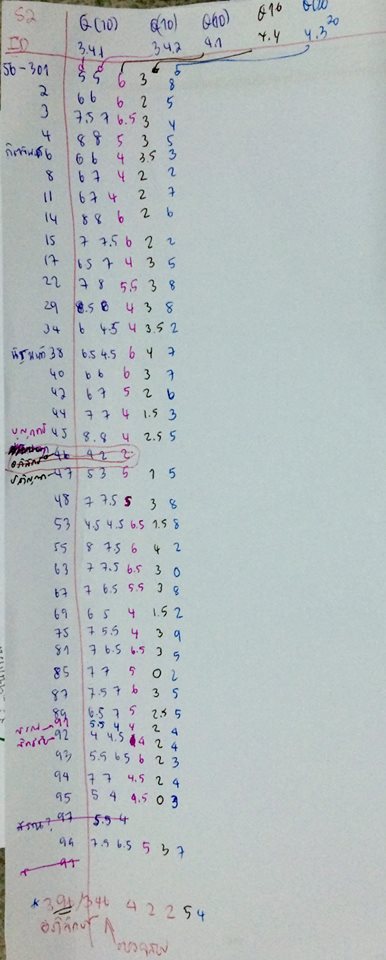 S2 Q(10) Q(10) Q(10) Q10 Q(20)
ID 3.4.1 3.4.2 4.1 4.4 4.3 20
56-301 5 5 6 3 8
2 6 6 6 2 5
3 7.5 7 6.5 3 4
4 8 8 5 3 5
6 6 6 4 3.5 3
8 6 7 4 2 2
11 6 7 4 2 7
14 8 8 6 2 6
15 7 7.5 6 2 2
17 6.5 7 4 3 5
22 7 8 5.5 3 8
29 8.5 8 4 3 8
34 6 4.5 4 3.5 2
38 6.5 4.5 6 4 7
40 6 6 6 3 7
42 6 7 5 2 6
44 7 7 4 1.5 3
45 8.8 4 2.5 5
46 4 2 2
47 5 3 5 1 5
48 7 7.5 5 3 8
53 4.5 4.5 6.5 1.5 8
55 8 7.5 6 4 2
63 7 7.5 6.5 3 0
67 7 6.5 5.5 3 8
69 6 5 4 1.5 2
75 7 5.5 4 3 9
81 7 6.5 6.5 3 5
85 7 7 5 0 2
87 7.5 7 6 3 5
89 6.5 7 5 2.5 5
91 5.5 4 4 2 4
92 4 4.5 4 2 4
93 5.5 6.5 6 2 3
94 7 7 4.5 2 4
95 5 4 4.5 0 3
97 5.5 4
99 7.5 6.5 5 3 7
* 391/346 4 2 2 5 4